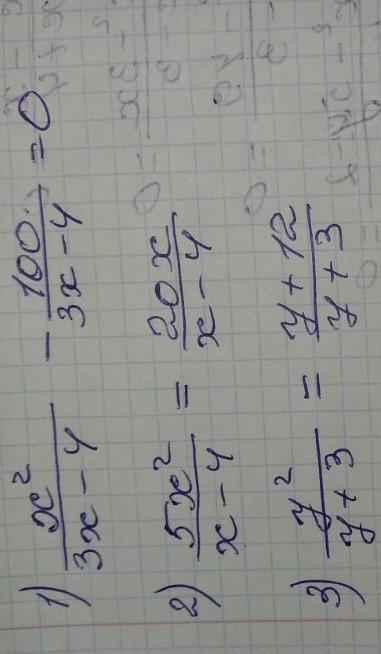 1) x²/(3x-4) - 100/(3x-4) = 0
2) 5x²/(x-4) = 20x/(x-4)
3) y²/(y+3) = (y+12)/(y+3)